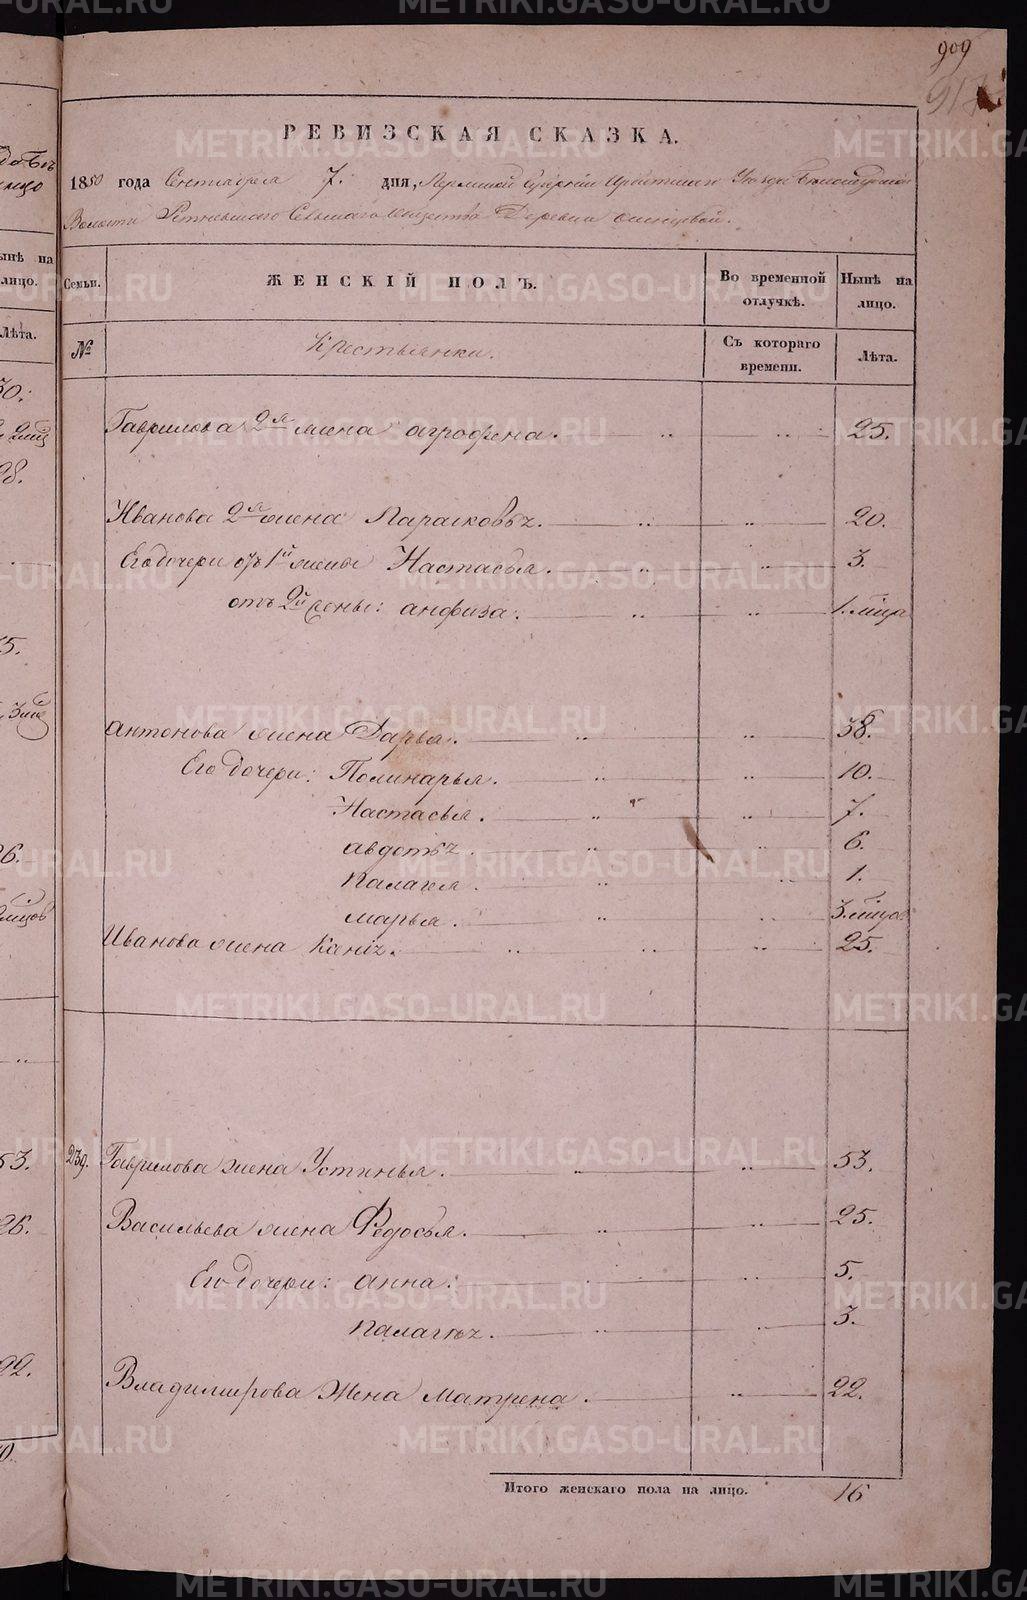 909
РЕВИЗСКАЯ СКАЗКА.
1850 года Сентября 7. дня, Пермской Губернiи Ирбитскаго Уѣзда Бѣлослудской
Волости Рѣтневскаго Сельскаго Общества Деревни
Семьи. ЖЕНСКIЙ ПОЛЪ. Во временной отлучкѣ. Нынѣ на лицо.
№ Крестьянки. Съ котораго времени. Лѣта.
Гаврилова 2я жена Агрофена. 25.
Иванова 2я жена Парасковья. 20.
Его дочери отъ 1й жены Настасья. 3.
отъ 2й жены: Анфиза. 1. мѣсяца
Антонова жена Дарья. 38.
Его дочери: Полинарья. 10.
Настасья. 7.
Авдотья 6.
Палагея. 1.
Марья. 3. мѣсяцов
Иванова жена 25.
239. Гаврилова жена Устинья. 53.
Васильева жена Федосья. 25.
Его дочери: Анна: 5.
Палагея. 3.
Владимирова Жена Матрена. 22.
Итого женскаго пола на лицо. 16
METRIKI.GASO-URAL.RU